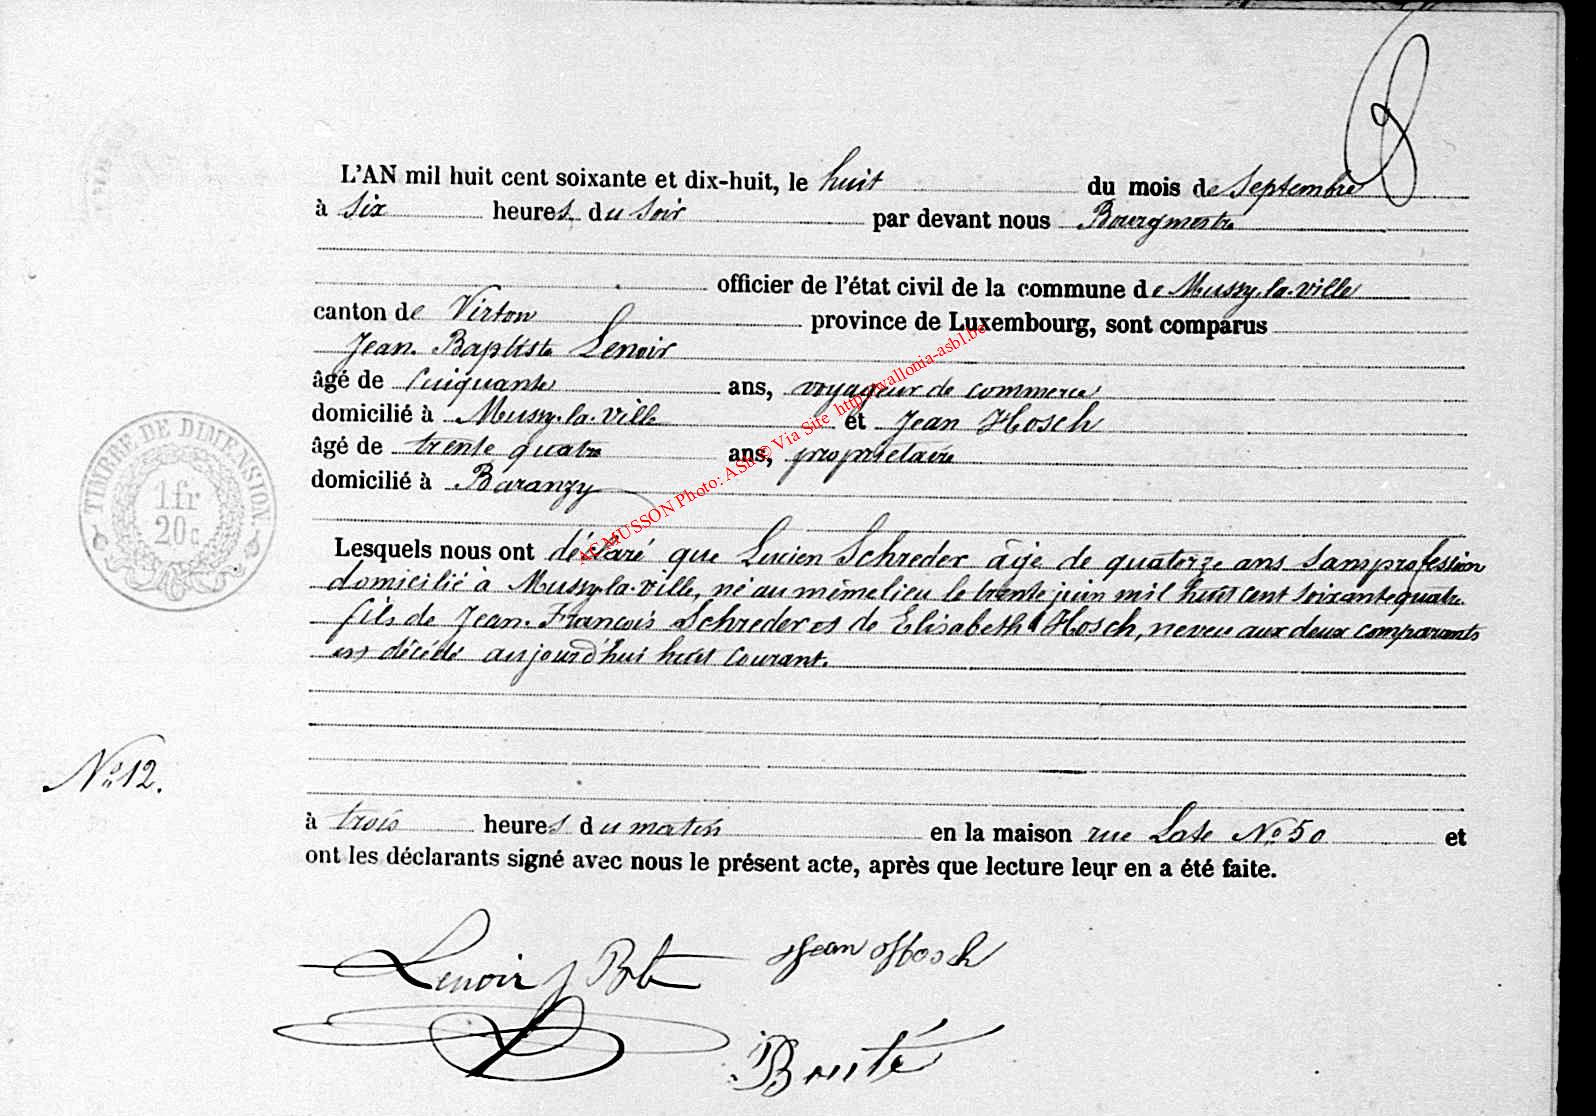 L'AN mil huit cent soixante et dix-huit, le huit du mois de Septembre
à Six heures du Soir par devant nous Bourgmestre
officier de l'état civil de la commune de Mussy-la-ville
canton de Virton province de Luxembourg, sont comparus
Jean-Baptiste Lenoir
âgé de Cinquante ans, voyageur de commerce
domicilié à Mussy-la-ville et Jean Hosch
âgé de trente quatre ans, propriétaire
domicilié à Baranzy
Lesquels nous ont déclaré que Lucien Schreder âgé de quatorze ans Sans profession
domicilié à Mussy-la-ville, né au même lieu le trente juin mil huit cent Soixante quatre
fils de Jean-François Schreder et de Elisabeth Hosch, neveu aux deux comparants
est décédé aujourd'hui huit Courant.
No 12.
à trois heures du matin en la maison rue Late No 50 et
ont les déclarants signé avec nous le présent acte, après que lecture leur en a été faite.
Lenoir J Bte Jean Hosch
Bouté
TIMBRE DE DIMENSION.
1 fr
20 c
ACMUSSON Photo: ASh © Via Site http://wallonia-asbl.be